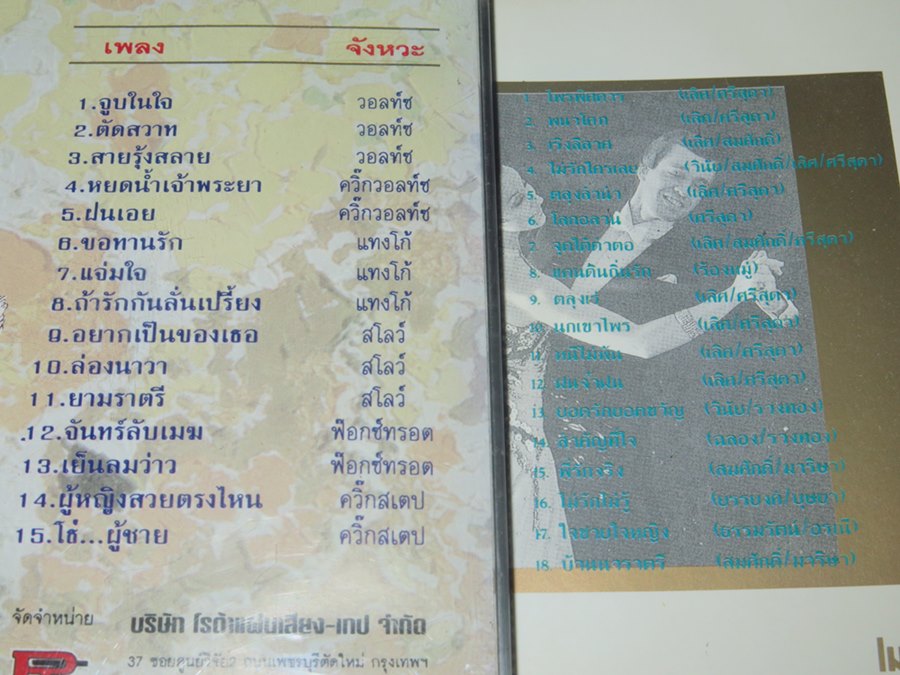 เพลง จังหวะ
1.จูบในใจ วอลท์ซ
2.ตัดสวาท วอลท์ซ
3.สายรุ้งสลาย วอลท์ซ
4.หยดน้ำเจ้าพระยา ควิ๊กวอลท์ซ
5.ฝนเอย ควิ๊กวอลท์ซ
6.ขอทานรัก แทงโก้
7.แจ่มใจ แทงโก้
8.ถ้ารักกันลั่นเปรี้ยง แทงโก้
9.อยากเป็นของเธอ สโลว์
10.ล่องนาวา สโลว์
11.ยามราตรี สโลว์
12.จันทร์ลับเมฆ ฟ๊อกซ์ทรอต
13.เย็นลมว่าว ฟ๊อกซ์ทรอต
14.ผู้หญิงสวยตรงไหน ควิ๊กสเตป
15.โธ่...ผู้ชาย ควิ๊กสเตป
จัดจำหน่าย บริษัท โรต้าแผ่นเสียง-เทป จำกัด
37 ซอยศูนย์วิจัย2 ถนนเพชรบุรีตัดใหม่ กรุงเทพฯ
1. ไพรพิสดาร (เลิศ/ศรีสุดา)
2. พนาโศก (เลิศ/ศรีสุดา)
3. เริงลีลาศ (เลิศ/สมศักดิ์)
4. ไม่รักใครเลย (วินัย/สมศักดิ์/เลิศ/ศรีสุดา)
5. ตลุงลำนำ (เลิศ/ศรีสุดา)
6. (ศรีสุดา)
7. จุดไต้ตำตอ (เลิศ/สมศักดิ์/ศรีสุดา)
8. แดนดินถิ่นรัก (ร้องหมู่)
9. (เลิศ/ศรีสุดา)
10. นกเขาไพร (เลิศ/ศรีสุดา)
11. (เลิศ/ศรีสุดา)
12. ฝนจ๋าฝน (เลิศ/ศรีสุดา)
13. ยอดรักยอดขวัญ (วินัย/รวงทอง)
14. สำคัญที่ใจ (ฉลอง/รวงทอง)
15. พี่รักจริง (สมศักดิ์/มาริษา)
16. ไม่รักไม่รู้ (ยรรยงค์/บุษยา)
17. ใจชายใจหญิง
18. บ้านนาราตรี (สมศักดิ์/มาริษา)